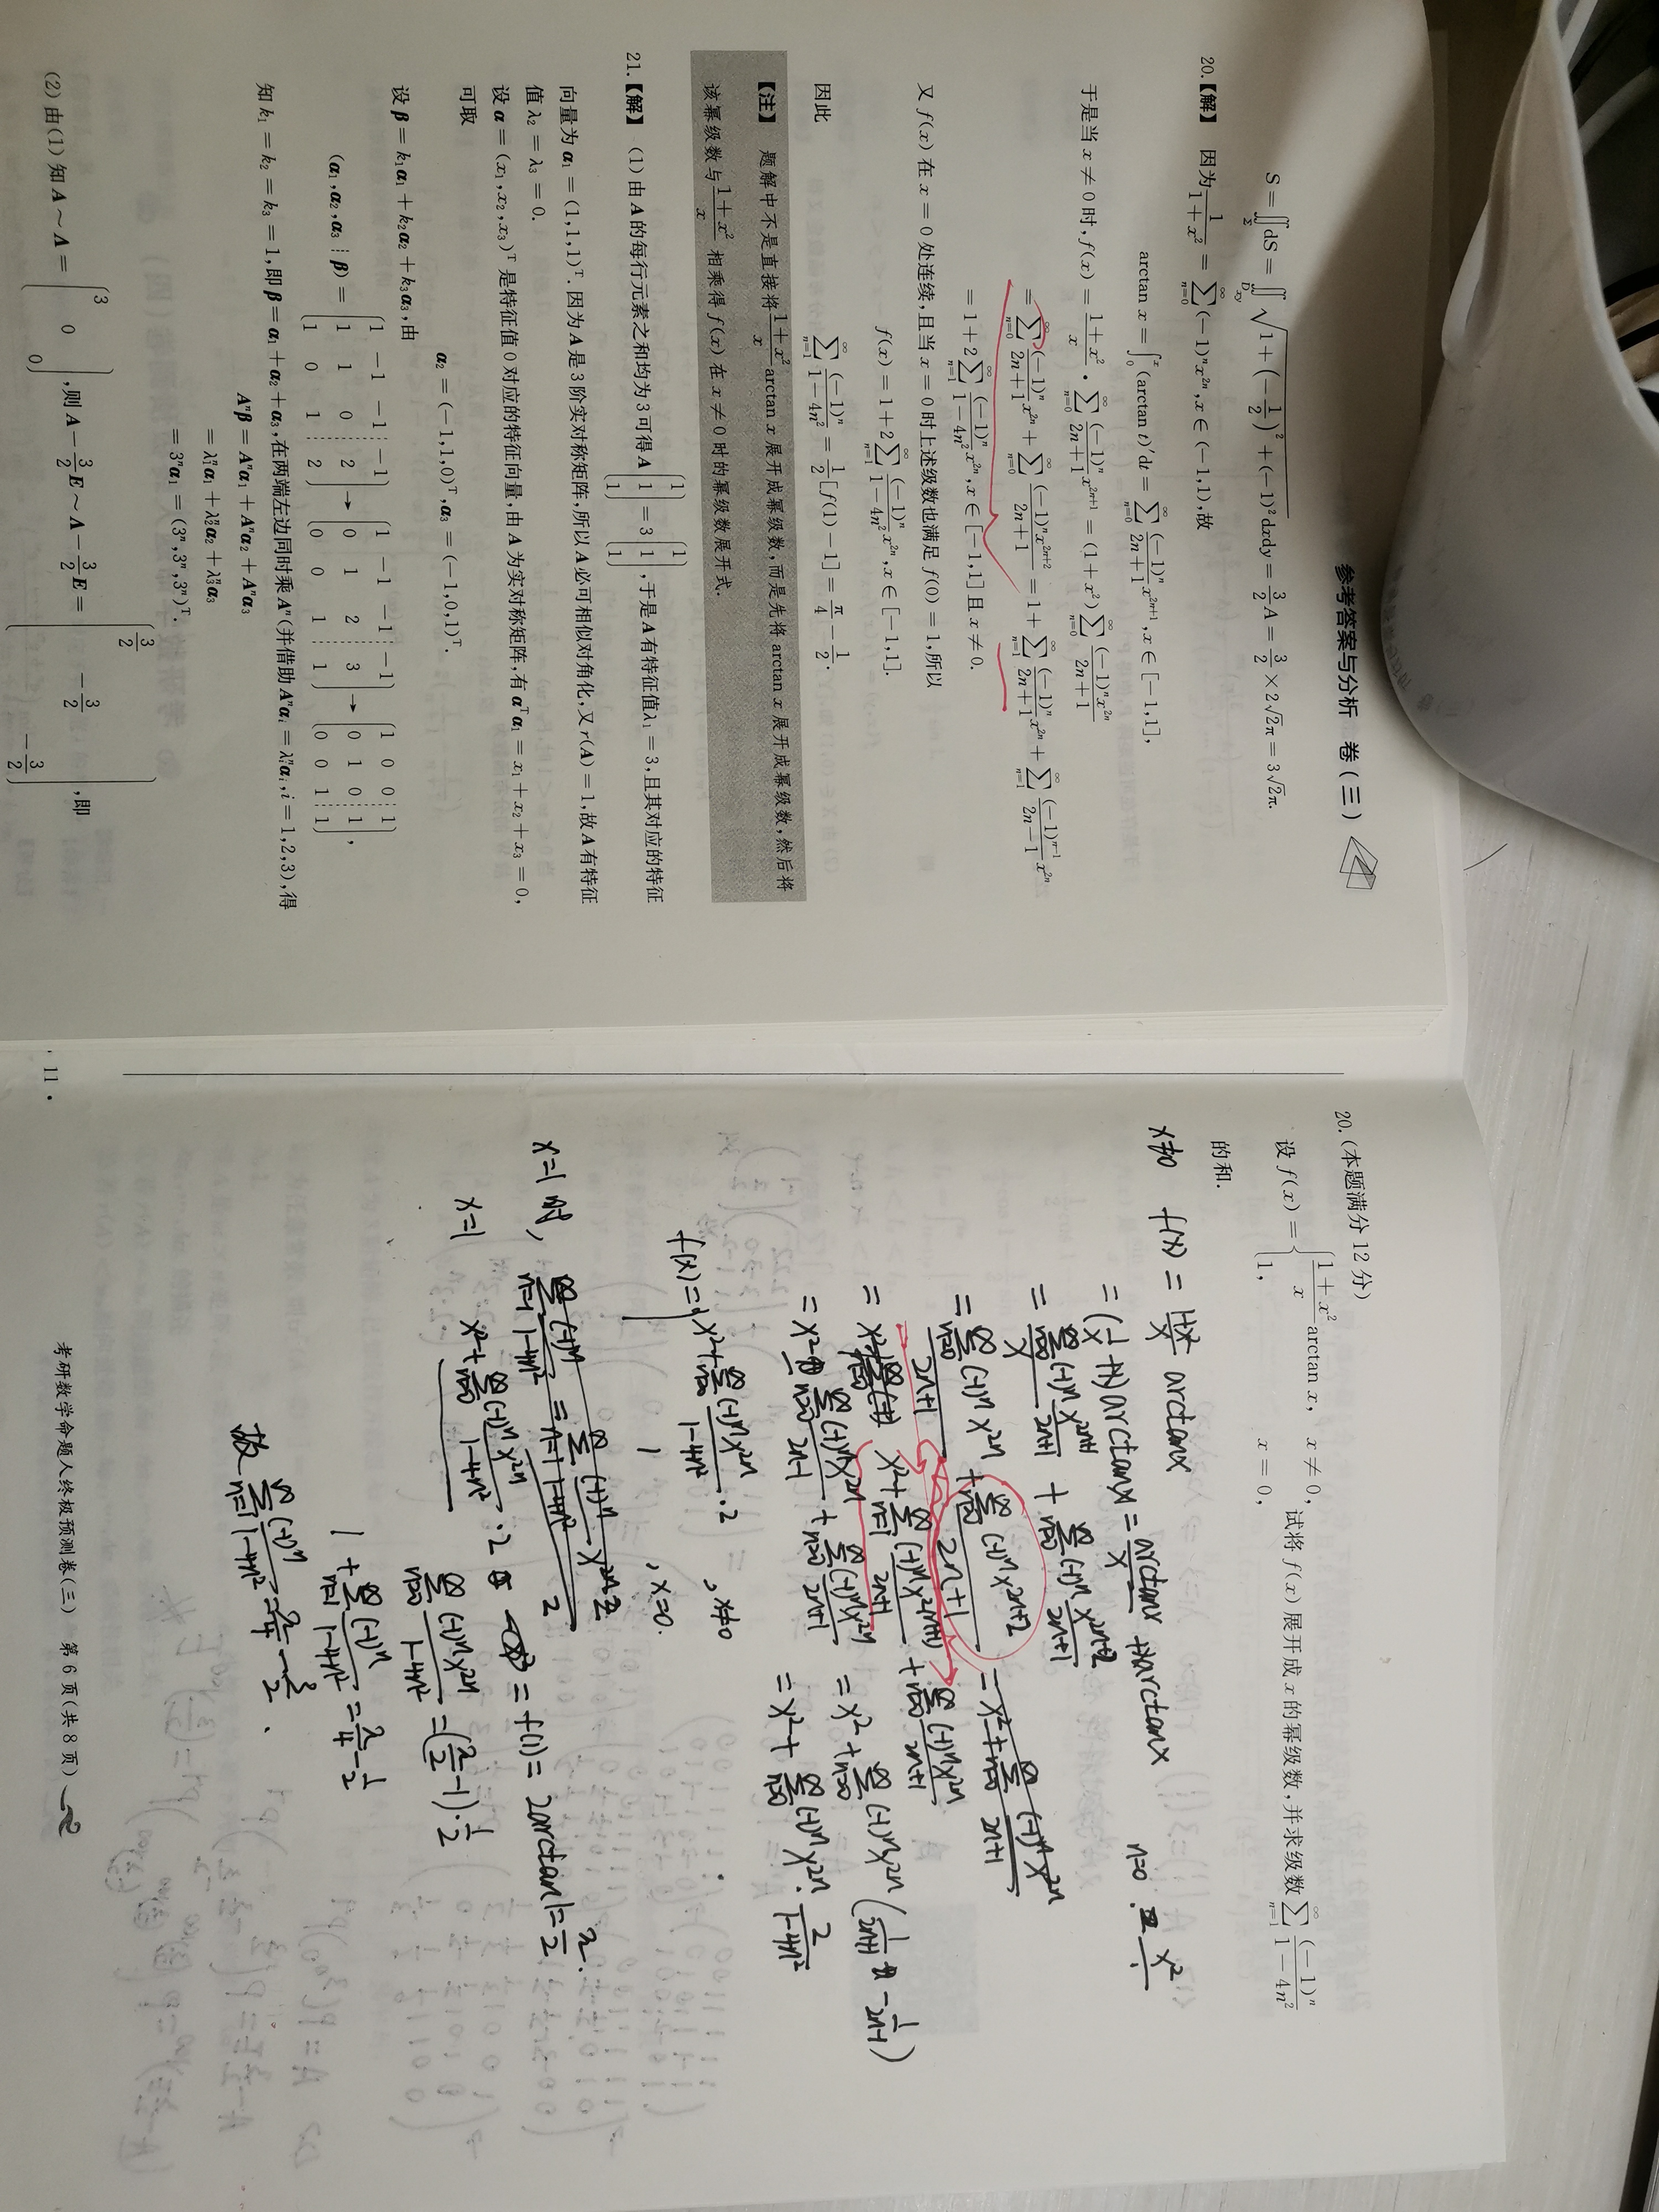 参考答案与分析 卷(三)
S = ∬_Σ dS = ∬_{D_xy} √(1 + (-1/2)² + (-1)²) dxdy = 3/2 A = 3/2 × 2√2π = 3√2π.
20.【解】 因为 1/(1+x²) = ∑_{n=0}^∞ (-1)ⁿx²ⁿ, x ∈ (-1,1), 故
arctan x = ∫_0^x (arctan t)′dt = ∑_{n=0}^∞ (-1)ⁿ/(2n+1) x²ⁿ⁺¹, x ∈ [-1,1],
于是当 x ≠ 0 时, f(x) = (1+x²)/x · ∑_{n=0}^∞ (-1)ⁿ/(2n+1) x²ⁿ⁺¹ = (1+x²) ∑_{n=0}^∞ (-1)ⁿx²ⁿ/(2n+1)
= ∑_{n=0}^∞ (-1)ⁿ/(2n+1) x²ⁿ + ∑_{n=0}^∞ (-1)ⁿx²ⁿ⁺²/(2n+1) = 1 + ∑_{n=1}^∞ (-1)ⁿ/(2n+1) x²ⁿ + ∑_{n=1}^∞ (-1)ⁿ⁻¹/(2n-1) x²ⁿ
= 1 + 2∑_{n=1}^∞ (-1)ⁿ/(1-4n²) x²ⁿ, x ∈ [-1,1] 且 x ≠ 0.
又 f(x) 在 x = 0 处连续,且当 x = 0 时上述级数也满足 f(0) = 1,所以
f(x) = 1 + 2∑_{n=1}^∞ (-1)ⁿ/(1-4n²) x²ⁿ, x ∈ [-1,1].
因此
∑_{n=1}^∞ (-1)ⁿ/(1-4n²) = 1/2[f(1) - 1] = π/4 - 1/2.
【注】 题解中不是直接将 (1+x²)/x arctan x 展开成幂级数,而是先将 arctan x 展开成幂级数,然后将
该幂级数与 (1+x²)/x 相乘得 f(x) 在 x ≠ 0 时的幂级数展开式.
21.【解】 (1) 由 A 的每行元素之和均为 3 可得 A (1 1 1) = 3 (1 1 1), 于是 A 有特征值 λ₁ = 3,且其对应的特征
向量为 α₁ = (1,1,1)ᵀ. 因为 A 是 3 阶实对称矩阵,所以 A 必可相似对角化,又 r(A) = 1,故 A 有特征
值 λ₂ = λ₃ = 0.
设 α = (x₁,x₂,x₃)ᵀ 是特征值 0 对应的特征向量,由 A 为实对称矩阵,有 αᵀα₁ = x₁ + x₂ + x₃ = 0,
可取
α₂ = (-1,1,0)ᵀ, α₃ = (-1,0,1)ᵀ.
设 β = k₁α₁ + k₂α₂ + k₃α₃,由
(α₁,α₂,α₃ ⋮ β) = (1 -1 -1 ⋮ -1; 1 1 0 ⋮ 2; 1 0 1 ⋮ 2) → (1 -1 -1 ⋮ -1; 0 1 2 ⋮ 3; 0 0 1 ⋮ 1) → (1 0 0 ⋮ 1; 0 1 0 ⋮ 1; 0 0 1 ⋮ 1),
知 k₁ = k₂ = k₃ = 1,即 β = α₁ + α₂ + α₃,在两端左边同时乘 Aⁿ(并借助 Aⁿαᵢ = λᵢⁿαᵢ, i = 1,2,3),得
Aⁿβ = Aⁿα₁ + Aⁿα₂ + Aⁿα₃
= λ₁ⁿα₁ + λ₂ⁿα₂ + λ₃ⁿα₃
= 3ⁿα₁ = (3ⁿ,3ⁿ,3ⁿ)ᵀ.
(2) 由(1) 知 A ~ Λ = (3 0 0), 则 A - 3/2 E ~ Λ - 3/2 E = (3/2 -3/2 -3/2), 即
· 11 ·
20. (本题满分 12 分)
设 f(x) = { (1+x²)/x arctan x, x ≠ 0,
1, x = 0,
试将 f(x) 展开成 x 的幂级数,并求级数 ∑_{n=1}^∞ (-1)ⁿ/(1-4n²)
的和.
x≠0 f(x) = (1+x²)/x arctanx
= (1/x + x) arctanx = arctanx/x + xarctanx
= ∑_{n=0}^∞ (-1)ⁿ x²ⁿ⁺¹/(2n+1) / x + ∑_{n=0}^∞ (-1)ⁿ x²ⁿ⁺²/(2n+1)
= ∑_{n=0}^∞ (-1)ⁿ x²ⁿ/(2n+1) + ∑_{n=0}^∞ (-1)ⁿ x²ⁿ⁺²/(2n+1)
= x² + ∑_{n=0}^∞ (-1)ⁿ x²ⁿ (1/(2n+1) - 1/(2n-1))
= x² + ∑_{n=0}^∞ (-1)ⁿ x²ⁿ · 2/(1-4n²)
f(x) = { x² + ∑_{n=0}^∞ (-1)ⁿ x²ⁿ/(1-4n²) · 2 , x≠0
1 , x=0.
x=1 时,
x=1 x² + ∑_{n=0}^∞ (-1)ⁿ x²ⁿ/(1-4n²) · 2 = f(1) = 2arctan1 = π/2.
∑_{n=0}^∞ (-1)ⁿ x²ⁿ/(1-4n²) = (π/2 - 1) · 1/2
1 + ∑_{n=1}^∞ (-1)ⁿ/(1-4n²) = π/4 - 1/2
故 ∑_{n=1}^∞ (-1)ⁿ/(1-4n²) = π/4 - 3/2.
考研数学命题人终极预测卷(三) 第 6 页(共 8 页)